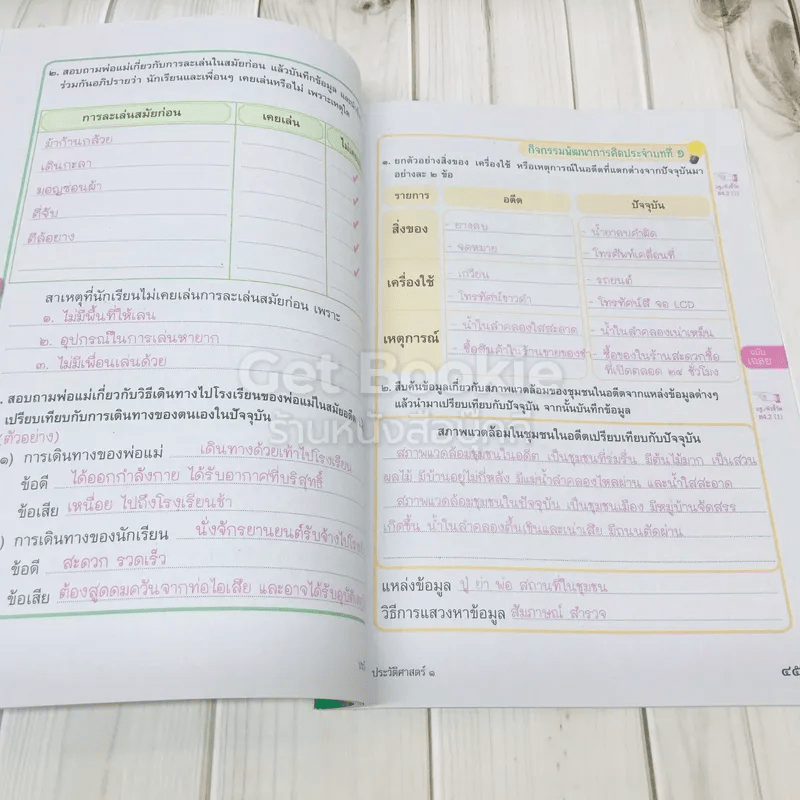 ๒. สอบถามพ่อแม่เกี่ยวกับการละเล่นในสมัยก่อน แล้วบันทึกข้อมูล และนำ
ร่วมกันอภิปรายว่า นักเรียนและเพื่อนๆ เคยเล่นหรือไม่ เพราะเหตุใด
การละเล่นสมัยก่อน เคยเล่น
ม้าก้านกล้วย
เดินกะลา
มอญซ่อนผ้า
ตี่จับ
ตีล้อยาง
สาเหตุที่นักเรียนไม่เคยเล่นการละเล่นสมัยก่อน เพราะ
๑. ไม่มีพื้นที่ให้เล่น
๒. อุปกรณ์ในการเล่นหายาก
๓. ไม่มีเพื่อนเล่นด้วย
. สอบถามพ่อแม่เกี่ยวกับวิธีเดินทางไปโรงเรียนของพ่อแม่ในสมัยอดีต
เปรียบเทียบกับการเดินทางของตนเองในปัจจุบัน
(ตัวอย่าง)
๑) การเดินทางของพ่อแม่ เดินทางด้วยเท้าไปโรงเรียน
ข้อดี ได้ออกกำลังกาย ได้รับอากาศที่บริสุทธิ์
ข้อเสีย เหนื่อย ไปถึงโรงเรียนช้า
) การเดินทางของนักเรียน นั่งจักรยานยนต์รับจ้างไป
ข้อดี สะดวก รวดเร็ว
ข้อเสีย ต้องสูดดมควันจากท่อไอเสีย และอาจได้รับ
กิจกรรมพัฒนาการคิดประจำบทที่ ๑
๑. ยกตัวอย่างสิ่งของ เครื่องใช้ หรือเหตุการณ์ในอดีตที่แตกต่างจากปัจจุบันมา
อย่างละ ๒ ข้อ
รายการ อดีต ปัจจุบัน
สิ่งของ - ยางลบ - น้ำยาลบคำผิด
- จดหมาย - โทรศัพท์เคลื่อนที่
เครื่องใช้ - เกวียน - รถยนต์
- โทรทัศน์ขาวดำ - โทรทัศน์สี จอ LCD
เหตุการณ์ - น้ำในลำคลองใสสะอาด - น้ำในลำคลองเน่าเหม็น
- ซื้อสินค้าในร้านขายของชำ - ซื้อของในร้านสะดวกซื้อ
ที่เปิดตลอด ๒๔ ชั่วโมง
ฉบับ
เฉลย
๒. สืบค้นข้อมูลเกี่ยวกับสภาพแวดล้อมของชุมชนในอดีตจากแหล่งข้อมูลต่างๆ
แล้วนำมาเปรียบเทียบกับปัจจุบัน จากนั้นบันทึกข้อมูล
สภาพแวดล้อมในชุมชนในอดีตเปรียบเทียบกับปัจจุบัน
สภาพแวดล้อมชุมชนในอดีต เป็นชุมชนที่ร่มรื่น มีต้นไม้มาก เป็นสวน
ผลไม้ มีบ้านอยู่ไม่กี่หลัง มีแม่น้ำลำคลองไหลผ่าน และน้ำใสสะอาด
สภาพแวดล้อมชุมชนในปัจจุบัน เป็นชุมชนเมือง มีหมู่บ้านจัดสรร
เกิดขึ้น น้ำในลำคลองตื้นเขินและเน่าเสีย มีถนนตัดผ่าน
แหล่งข้อมูล ปู่ ย่า พ่อ สถานที่ในชุมชน
วิธีการแสวงหาข้อมูล สัมภาษณ์ สำรวจ
ประวัติศาสตร์ ๑
๔๕
Get Bookie